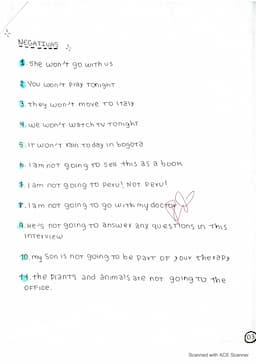 NEGATIVAS
1. She won't go with us
2. You won't pray tonight
3. they won't move to Italy
4. we won't watch tv tonight
5. it won't rain today in bogota
6. I am not going to see this as a book
7. I am not going to peru! Not peru!
8. I am not going to go with my doctor
9. He's not going to answer any questions in this
interview
10. my son is not going to be part of your therapy
11. the plants and animals are not going to the
office.
03
Scanned with ACE Scanner